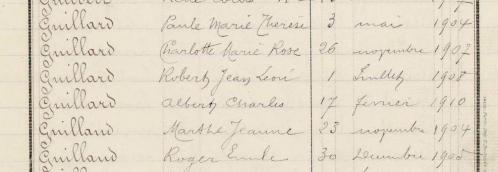 Guillard Paule Marie Thérèse 3 mai 1904
Guillard Charlotte Marie Rose 26 novembre 1907
Guillard Robert Jean Léon 1 Juillet 1908
Guillard Albert Charles 17 février 1910
Guilland Marthe Jeanne 23 novembre 1904
Guilland Roger Emile 30 Décembre 1905